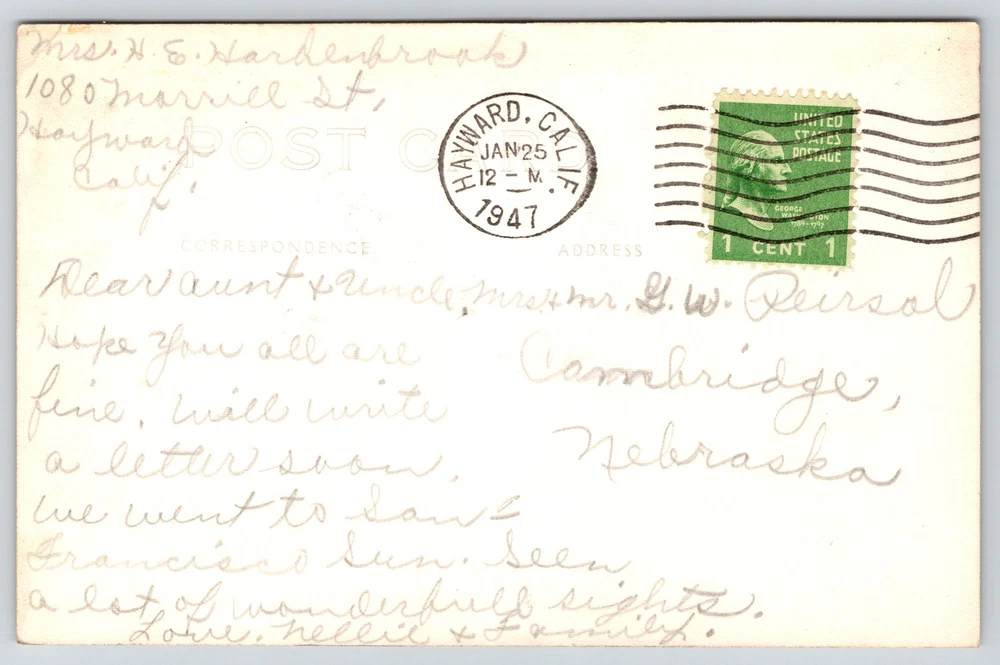 Mrs. H. E. Hardenbrook
1080 Morrill St,
Hayward
Calif.
POST CARD
HAYWARD, CALIF.
JAN 25
12 - M
1947
UNITED
STATES
POSTAGE
GEORGE
WASHINGTON
1789-1797
1 CENT 1
CORRESPONDENCE
ADDRESS
Dear Aunt & Uncle,
Hope you all are
fine. Will write
a letter soon.
We went to San-
Francisco Sun. Seen
a lot of wonderfull sights.
Love. Nellie & Family.
Mrs & Mr. G. W. Peirsol
Cambridge,
Nebraska